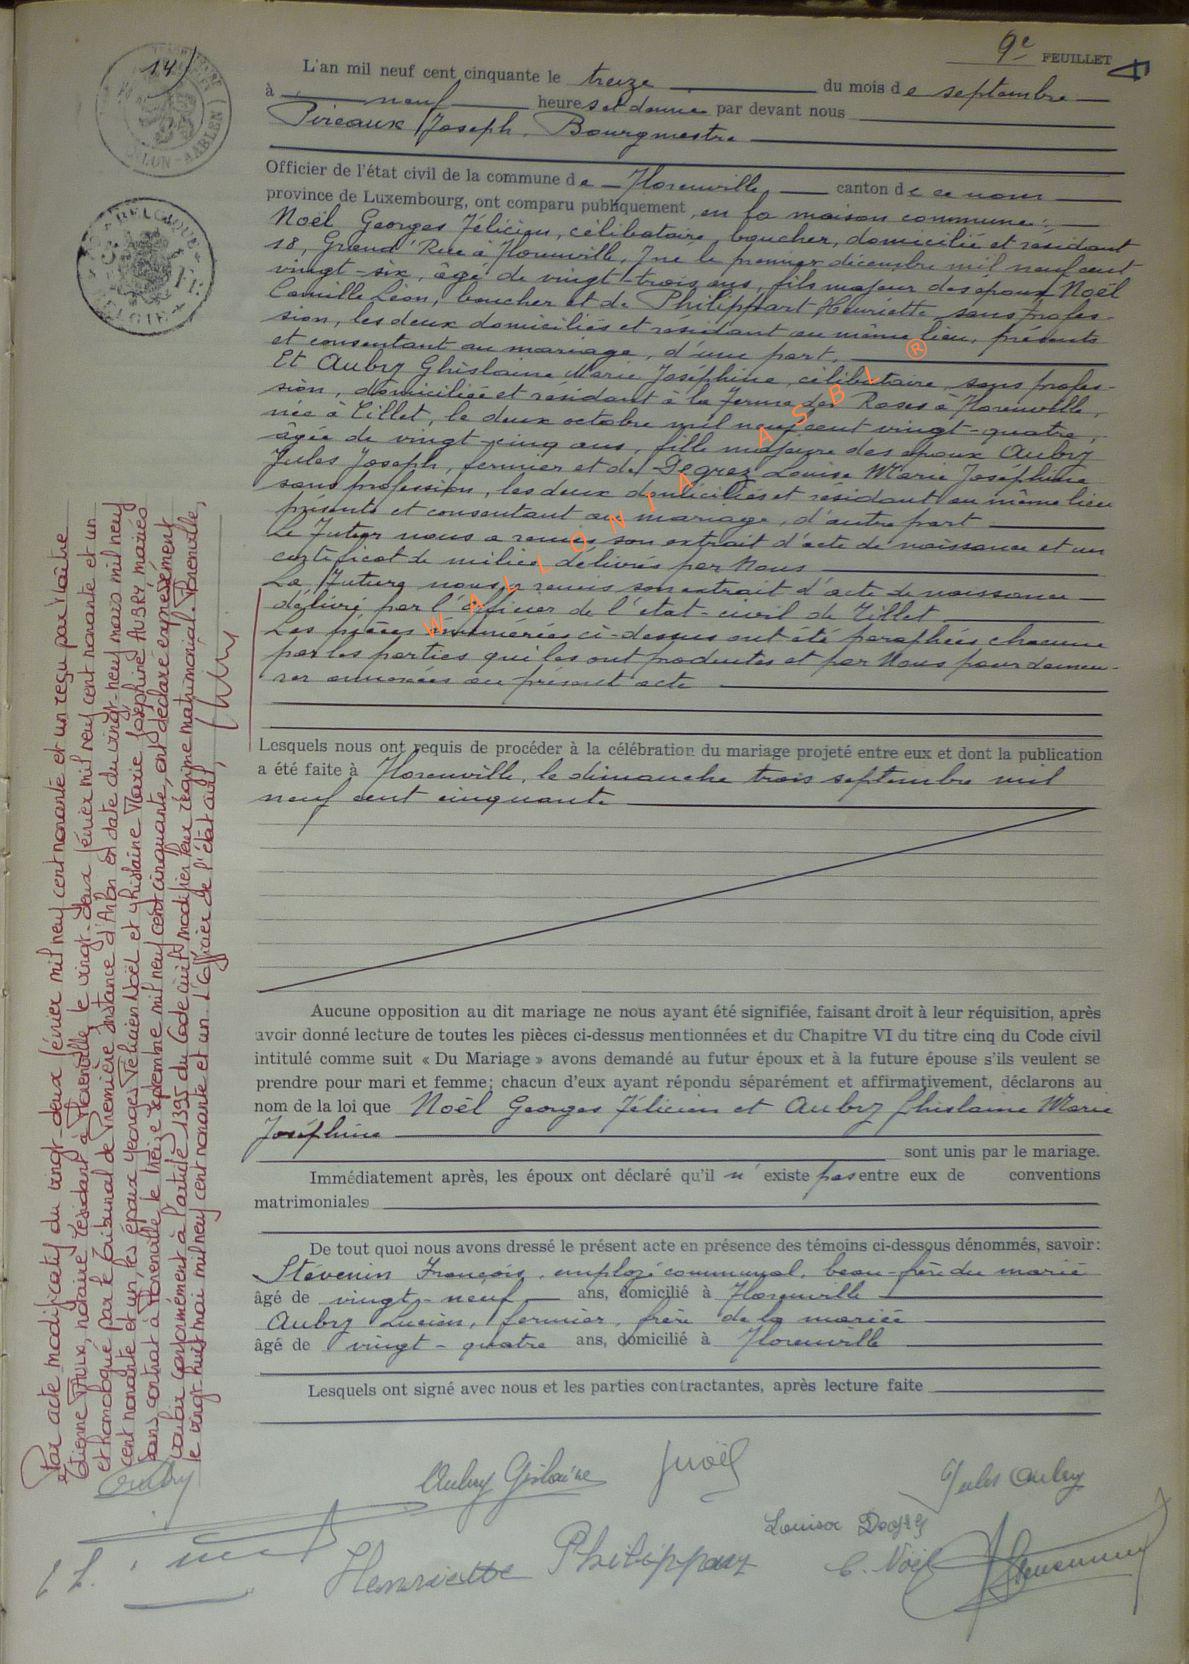 14
9e FEUILLET
L'an mil neuf cent cinquante le treize du mois de septembre
à neuf heures et demie par devant nous
Pireaux Joseph, Bourgmestre
Officier de l'état civil de la commune de Florenville, canton de ce nom
province de Luxembourg, ont comparu publiquement, en la maison commune:
Noël Georges Félicien, célibataire, boucher, domicilié et résidant
18, Grand'Rue à Florenville, né le premier décembre mil neuf cent
vingt-six, âgé de vingt-trois ans, fils majeur des époux Noël
Camille Léon, boucher et de Philippart Henriette, sans profes-
sion, les deux domiciliés et résidant au même lieu, présents
et consentant au mariage, d'une part.
Et Aubry Ghislaine Marie Joséphine, célibataire, sans profes-
sion, domiciliée et résidant à la Ferme des Roses à Florenville,
née à Tillet, le deux octobre mil neuf cent vingt-quatre,
âgée de vingt-cinq ans, fille majeure des époux Aubry
Jules Joseph, fermier et de Degrez Louise Marie Joséphine
sans profession, les deux domiciliés et résidant au même lieu
présents et consentant au mariage, d'autre part
Le Futur nous a remis son extrait d'acte de naissance et un
certificat de milice délivrés par Nous
La Future nous a remis son extrait d'acte de naissance
délivré par l'officier de l'état-civil de Tillet
Les pièces énumérées ci-dessus ont été paraphées chacune
par les parties qui les ont produites et par Nous pour demeu-
rer annexées au présent acte
Lesquels nous ont requis de procéder à la célébration du mariage projeté entre eux et dont la publication
a été faite à Florenville, le dimanche trois septembre mil
neuf cent cinquante
Aucune opposition au dit mariage ne nous ayant été signifiée, faisant droit à leur réquisition, après
avoir donné lecture de toutes les pièces ci-dessus mentionnées et du Chapitre VI du titre cinq du Code civil
intitulé comme suit « Du Mariage » avons demandé au futur époux et à la future épouse s'ils veulent se
prendre pour mari et femme; chacun d'eux ayant répondu séparément et affirmativement, déclarons au
nom de la loi que Noël Georges Félicien et Aubry Ghislaine Marie
Joséphine
sont unis par le mariage.
Immédiatement après, les époux ont déclaré qu'il n'existe pas entre eux de conventions
matrimoniales
De tout quoi nous avons dressé le présent acte en présence des témoins ci-dessous dénommés, savoir:
Stévenin François, employé communal, beau-frère du marié
âgé de vingt-neuf ans, domicilié à Florenville
Aubry Lucien, fermier, frère de la mariée
âgé de vingt-quatre ans, domicilié à Florenville
Lesquels ont signé avec nous et les parties contractantes, après lecture faite
Par acte modificatif du vingt-deux février mil neuf cent nonante et un reçu par Maître
Etienne, notaire résidant à Florenville le vingt-deux février mil neuf cent nonante et un
et homologué par le tribunal de Première instance d'Arlon en date du vingt-neuf mars mil neuf
cent nonante et un, les époux Georges Félicien NOËL et Ghislaine Marie Joséphine AUBRY, mariés
sans contrat à Florenville, le treize septembre mil neuf cent cinquante, ont déclaré expressément
vouloir conformément à l'article 1395 du Code civil modifier leur régime matrimonial. Florenville,
le vingt-huit mai mil neuf cent nonante et un. L'Officier de l'état civil,
Aubry
Aubry Gislaine
GNoël
Jules Aubry
Henriette Philippart
Louisa Degrez
C. Noël
WALLONIA ASBL ®